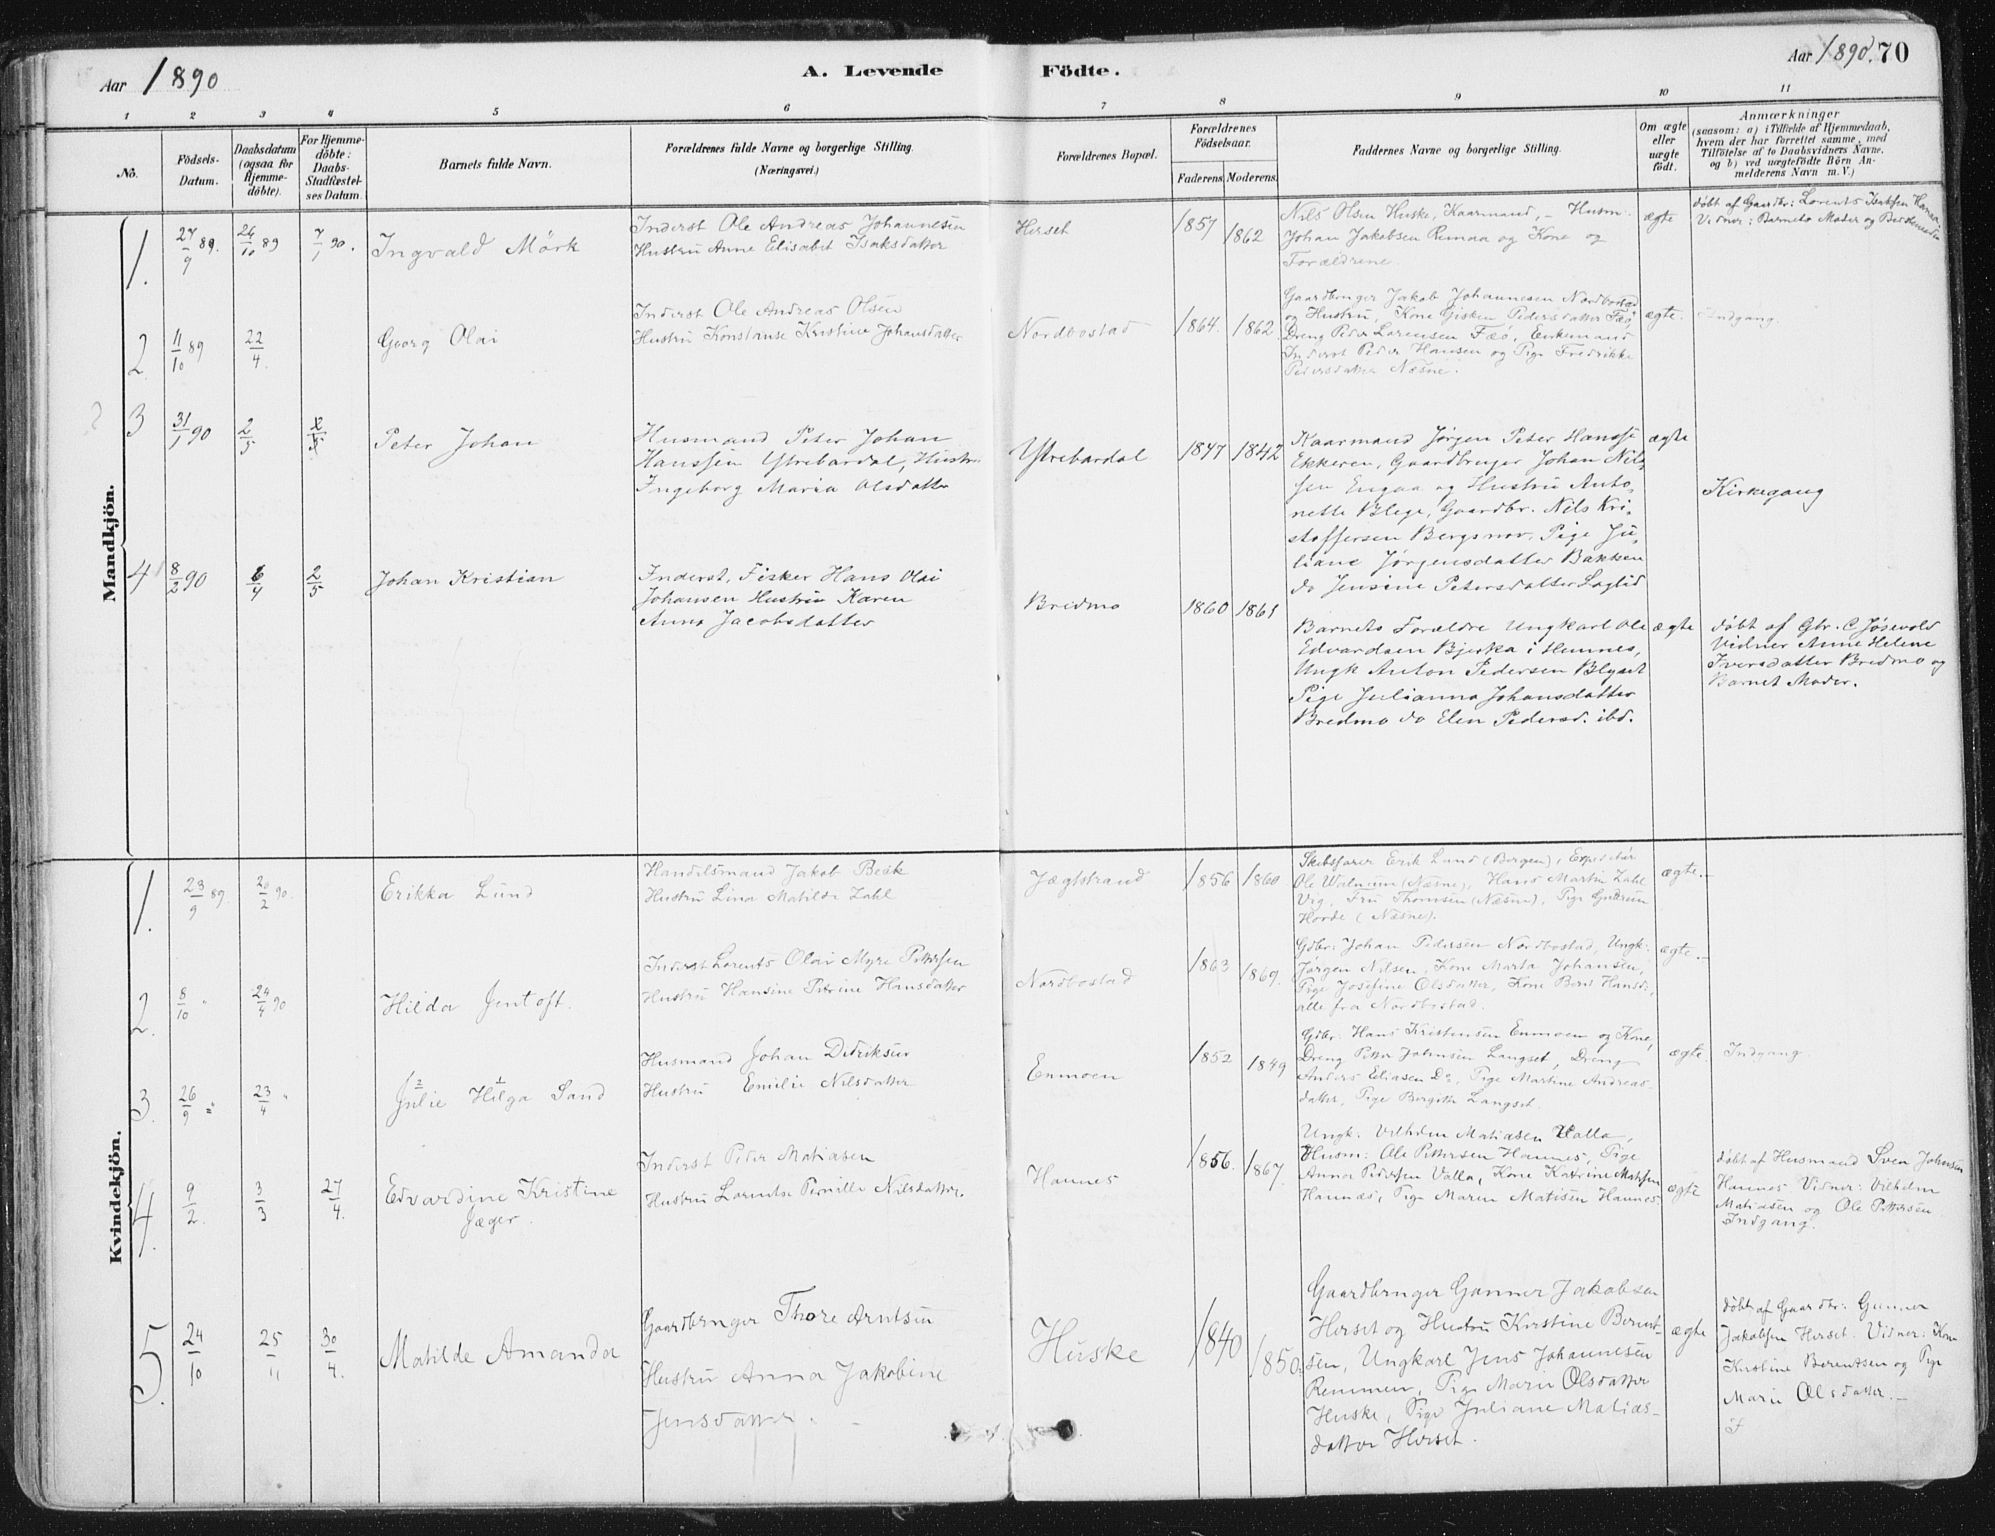 Aar 1890
A. Levende Födte.
Aar 1890. 70
1 2 3 4 5 6 7 8 9 10 11
No.
Födsels-Datum.
Daabsdatum (ogsaa for Hjemme-döbte).
For Hjemme-döbte: Daabs-Stadfæstel-ses Datum.
Barnets fulde Navn.
Forældrenes fulde Navne og borgerlige Stilling.
(Næringsvei.)
Forældrenes Bopæl.
Forældrenes Födselsaar.
Faderens. Moderens.
Faddernes Navne og borgerlige Stilling.
Om ægte eller uægte födt.
Anmærkninger
(saasom: a) i Tilfælde af Hjemmedaab,
hvem der har forrettet samme, med
Tilföielse af to Daabsvidners Navne,
og b) ved uægtefödte Börn An-
melderens Navn m. V.)
Mandkjön.
1. 27/9 89. 24/10 89 7/1 90. Ingvald Mörk
Inderst Ole Andreas Johannesen
Hustru Anne Elisabet Isaksdatter
Herset 1857 1862
Nils Olsen Huske, Kaarmand, - Husm.
Johan Jakobsen Remaa og Kone og
Forældrene.
ægte
döbt af Gaardbr: Lorents Isaksen
Vidner: Barnets Moder og
2. 11/10 89 22/4. Georg Olai
Inderst Ole Andreas Olsen
Hustru Konstanse Kristine Johansdatter
Nordbostad 1864. 1862.
Gaardbruger Jakob Johannesen Nordbostad
og Hustru, Kone Gisken Pedersdatter Fæö,
Dreng Peder Lorensen Fæö, Enkemand
Inderst Peder Hansen og Pige Fredrikke
Pedersdatter Næsne.
ægte.
Indgang
3 31/1 90 2/5 2/5 Peter Johan
Husmand Peter Johan
Hanssen Ytrebardal, Hustru
Ingeborg Maria Olsdatter
Ytrebardal 1847 1842
Kaarmand Jørgen Peter Hanss.
Ekkeren, Gaardbruger Johan Nils-
sen Engaa og Hustru Anto-
nette Blege, Gaardbr. Nils Kri-
stoffersen Bergsnov, Pige Ju-
liane Jørgensdatter Bakken
do Jensine Petersdatter
ægte
Kirkegang
4 8/2 90 6/4 2/5 Johan Kristian
Inderst, Fisker Hans Olai
Johansen Hustru Karen
Anna Jacobsdatter
Bredmo 1860 1861
Barnets Forældre Ungkarl Ole
Edvardsen Bjerka i Hemnes,
Ungk Anton Pedersen
Pige Julianna Johansdatter
Bredmo do Elen Pedersd. ibd.
ægte
døbt af Gbr. C. Jøsevold
Vidner Anne Helene
Iversdatter Bredmo og
Barnet Moder.
Kvindekjön.
1. 23/9 89. 20/2 90. Erikka Lund
Handelsmand Jakob Beck
Hustru Lina Matilde Zahl
Jægtstrand 1856 1860
Skibsfører Erik Lund (Bergen), Expeditör
Ole Walnum (Næsne), Hans Martin Zahl
Vig, Fru Thomsen (Næsne), Pige Gudrun
Horde (Næsne).
ægte.-
2. 8/10 " 24/4 90 Hilda Jentoft.
Inderst Lorents Olai Myre Pettersen
Hustru Hansine Petrine Hansdatter
Nordbostad 1863 1869.
Gdbr: Johan Pedersen Nordbostad, Ungk:
Jørgen Nilsen, Kone Marta Johansen,
Pige Josefine Olsdatter, Kone Berit Hansd:,
alle fra Nordbostad.
ægte.-
3. 26/9 " 23/4 " Julie 2 Helga 1 Sand
Husmand Johan Didriksen
Hustru Emilie Nilsdatter
Enmoen 1852 1849
Gdbr: Hans Kristensen Enmoen og Kone,
Dreng Petter Johnsen Langset, Dreng
Anders Eliasen Do, Pige Martine Andreas-
datter, Pige Bergitte Langset.
ægte.
Indgang
4. 9/2. 3/3 27/4. Edvardine Kristine
Jæger.
Inderst Peder Matiasen
Hustru Lorentse Pernille Nilsdatter.
Hannes 1856. 1867.
Ungk: Vilhelm Matiasen Valla,
Husm: Ole Pettersen Hannes, Pige
Anna Pedersen Valla, Kone Katrine Matisen
Hannæs, Pige Maren Matisen Hannes.
ægte
döbt af Husmand Sven Johnsen
Hannes Vidner: Vilhelm
Matiasen og Ole Pettersen.
Indgang.
5. 24/10 25/11 30/4. Matilde Amanda
Gaardbruger Thore Arntsen
Hustru Anna Jakobine
Jensdatter.
Huske 1840 1850.
Gaardbruger Gunner Jakobsen
Herset og Hustru Kristine Bernt-
sen, Ungkarl Jens Johannesen
Remmen, Pige Maren Olsdatter
Huske, Pige Juliane Matias-
datter Herset.
ægte
döbt af Gaardbr: Gunner
Jakobsen Herset. Vidner: Kone
Kristine Berentsen og Pige
Maren Olsdatter.-